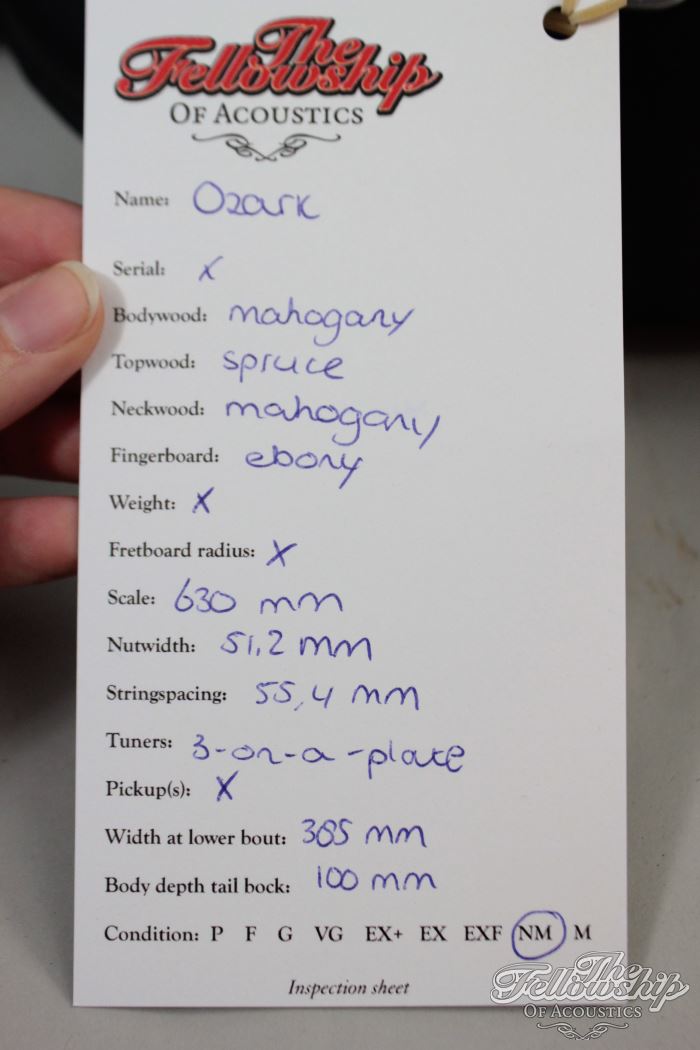 The
Fellowship
OF ACOUSTICS
Name: Ozark
Serial: x
Bodywood: mahogany
Topwood: spruce
Neckwood: mahogany
Fingerboard: ebony
Weight: X
Fretboard radius: X
Scale: 630 mm
Nutwidth: 51,2 mm
Stringspacing: 55,4 mm
Tuners: 3-on-a-plate
Pickup(s): X
Width at lower bout: 385 mm
Body depth tail bock: 100 mm
Condition: P F G VG EX+ EX EXF NM M
Inspection sheet
The
Fellowship
OF ACOUSTICS